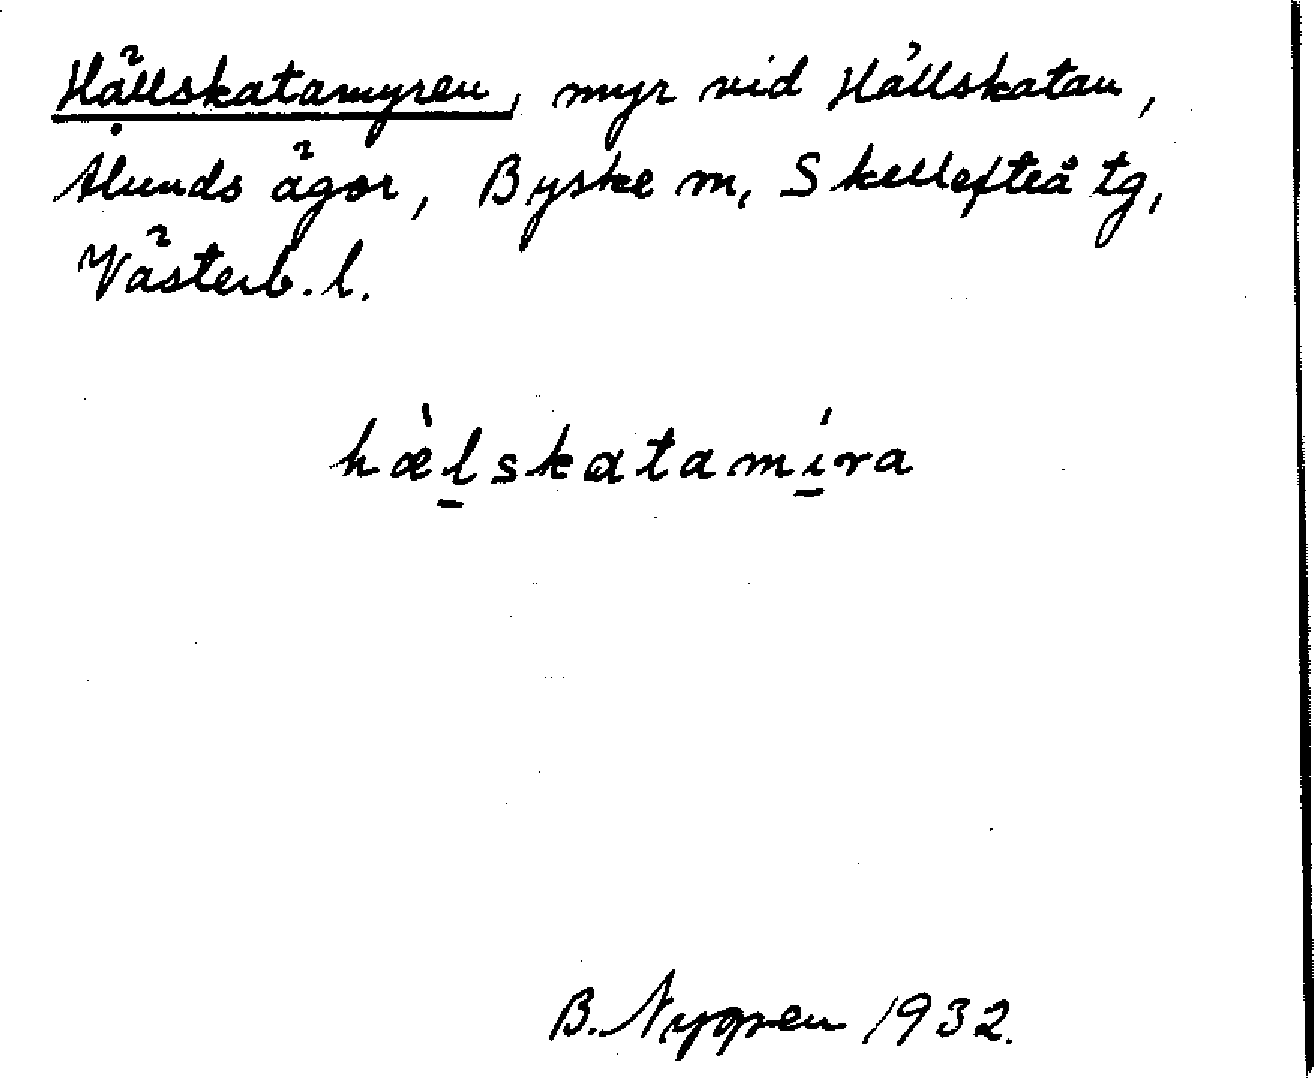 Hällskatamyren, myr vid Hällskatan,
Ålunds ägor, Byske m, Skellefteå tg,
Västerb. l.
hæ̀l̠skatamí̠ra
B. Nygren 1932.